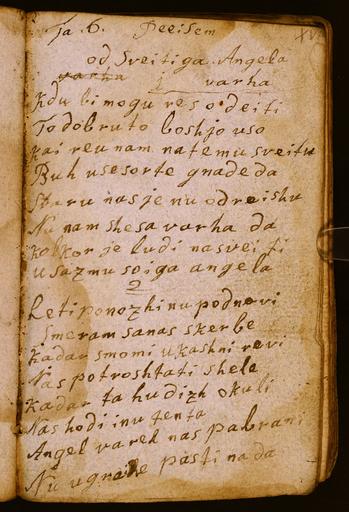 Ta .6. Peeisem
od Sveitiga Angela
varha
varha
Kdu bi mogu res odeiti
To dobruto boshjo uso
Kai reu nam na temu sveitu
Buh use sorte gnade da
Staru nas je nu odreishu
Nu nam shesa varha da
Kolkor je ludi na sveiti
Usazmu soiga angela
2
Leti ponozhi nu podnevi
Smeram sa nas skerbe
Kadar smo mi ukashni revi
Nas potroshtati shele
Kadar ta hudizh okuli
Nas hodi inu tenta
Angel varek nas pabrani
Nu ugrahe pasti na da